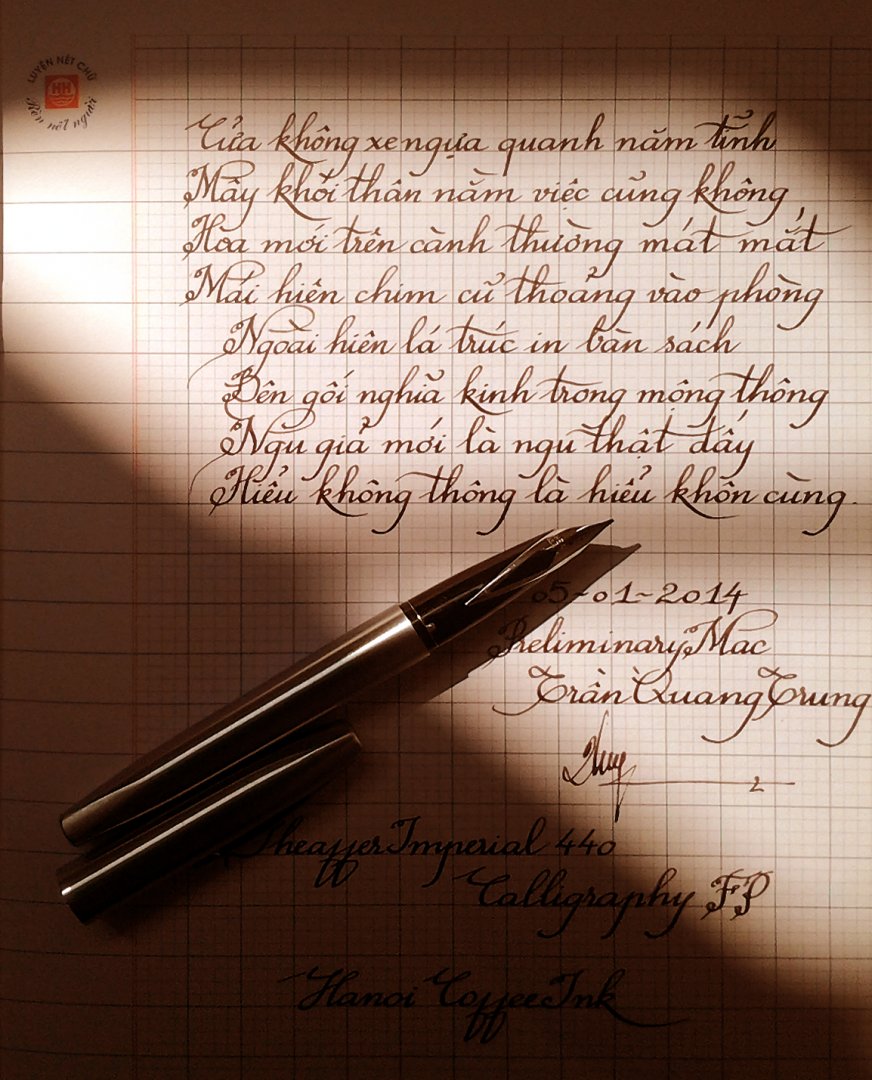 LUYỆN NÉT CHỮ
HH
Rèn nết người
Cửa không xe ngựa quanh năm tĩnh
thân nằm việc cũng không
Hoa mới trên cành thường mát mắt
Mái hiên chim cũ thoảng vào phòng
Ngoài hiên lá trúc in bàn sách
Bên gối nghĩa kinh trong mộng thông
Ngu giả mới là ngu thật đấy
Hiểu không thông là hiểu khôn cùng.
05-01-2014
PreliminaryMac
Trần Quang Trung
Sheaffer Imperial 440
Calligraphy FP
Hanoi Coffee Ink